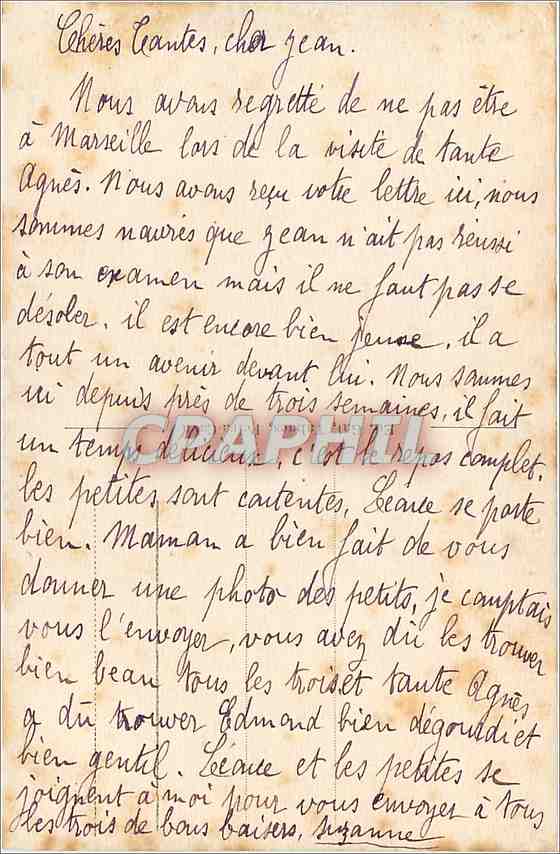 Chères Tantes, cher Jean.
Nous avons regretté de ne pas être
à Marseille lors de la visite de tante
Agnès. Nous avons reçu votre lettre ici, nous
sommes navrés que Jean n'ait pas réussi
à son examen mais il ne faut pas se
désoler, il est encore bien jeune, il a
tout un avenir devant lui. Nous sommes
ici depuis près de trois semaines, il fait
un temps délicieux, c'est le repos complet.
CPAPHIL
les petites sont contentes, Léonce se porte
bien. Maman a bien fait de vous
donner une photo des petits, je comptais
vous l'envoyer, vous avez dû les trouver
bien beau tous les trois et tante Agnès
a dû trouver Edmond bien dégourdi et
bien gentil. Léonce et les petites se
joignent à moi pour vous envoyer à tous
les trois de bons baisers, Suzanne